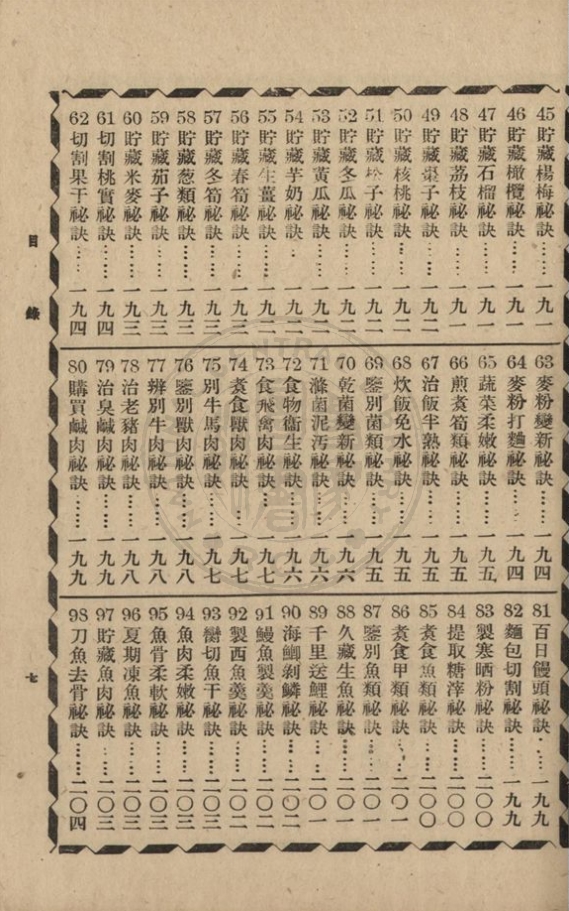 45貯藏楊梅祕訣……一九一
46貯藏橄欖祕訣……一九一
47貯藏石榴祕訣……一九一
48貯藏荔枝祕訣……一九一
49貯藏棗子祕訣……一九二
50貯藏核桃祕訣……一九二
51貯藏松子祕訣……一九二
52貯藏冬瓜祕訣……一九二
53貯藏黃瓜祕訣……一九二
54貯藏芋奶祕訣……一九二
55貯藏生薑祕訣……一九二
56貯藏春筍祕訣……一九三
57貯藏冬筍祕訣……一九三
58貯藏葱類祕訣……一九三
59貯藏茄子祕訣……一九三
60貯藏米麥祕訣……一九三
61切割桃實祕訣……一九四
62切割果干祕訣……一九四
63麥粉變新祕訣……一九四
64麥粉打麵祕訣……一九四
65蔬菜柔嫩祕訣……一九五
66煎煑筍類祕訣……一九五
67治飯半熟祕訣……一九五
68炊飯免水祕訣……一九五
69鑒別菌類祕訣……一九五
70乾菌變新祕訣……一九六
71滌菌泥污祕訣……一九六
72食物衞生祕訣……一九六
73食飛禽肉祕訣……一九七
74煑食獸肉祕訣……一九七
75別牛馬肉祕訣……一九七
76鑒別獸肉祕訣……一九八
77辨別牛肉祕訣……一九八
78治老豬肉祕訣……一九八
79治臭鹹肉祕訣……一九九
80購買鹹肉祕訣……一九九
81百日饅頭祕訣……一九九
82麵包切割祕訣……一九九
83製寒晒粉祕訣……二〇〇
84提取糖滓祕訣……二〇〇
85煑食魚類祕訣……二〇〇
86煑食甲類祕訣……二〇一
87鑒別魚類祕訣……二〇一
88久藏生魚祕訣……二〇一
89千里送鯉祕訣……二〇一
90海鯽剝鱗祕訣……二〇二
91鰻魚製羹祕訣……二〇二
92製西魚羹祕訣……二〇二
93臠切魚干祕訣……二〇三
94魚肉柔嫩祕訣……二〇三
95魚骨柔軟祕訣……二〇三
96夏期凍魚祕訣……二〇三
97貯藏魚肉祕訣……二〇三
98刀魚去骨祕訣……二〇四
目錄
七